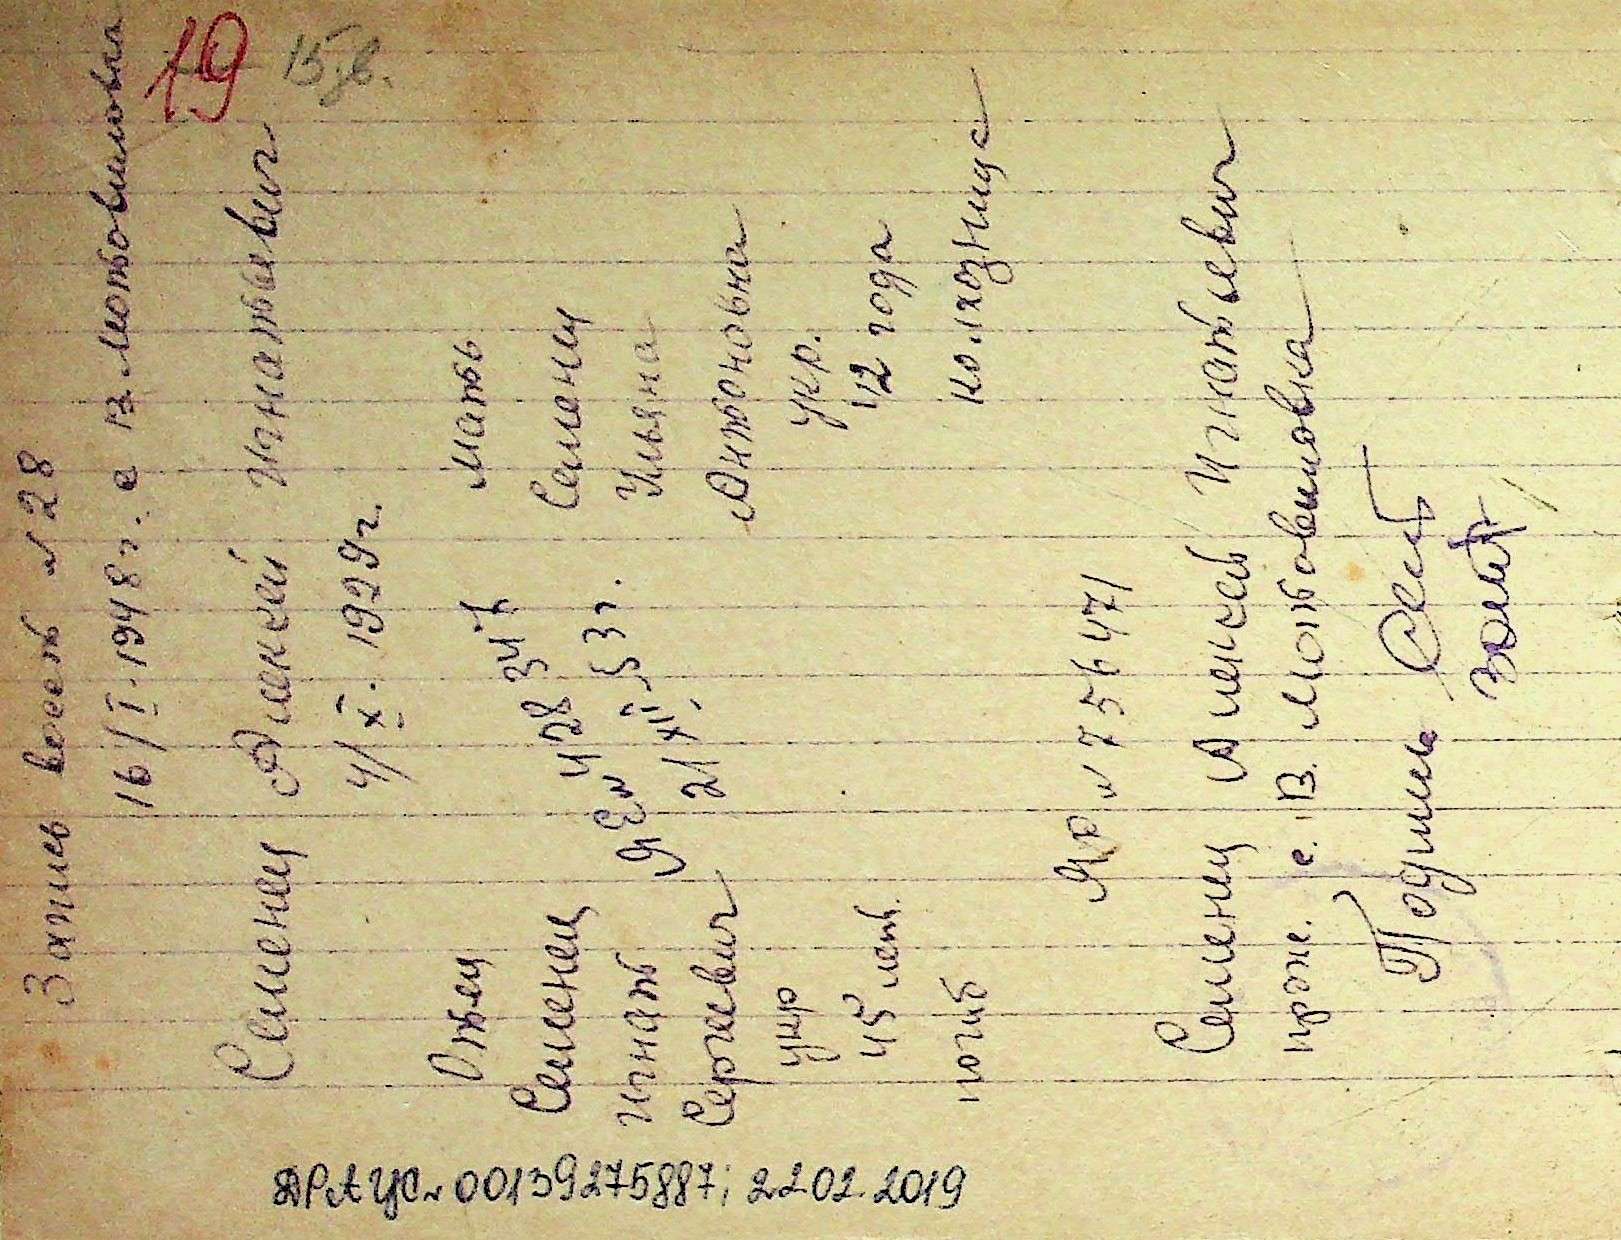 19 15 зв.
Запись восст N 28
16/I-1948 г. с В Мотовиловка
Семенец Алексей Игнатьевич
4/XI. 1929 г.
Отец
Семенец
Игнат
Сергеевич
укр
45 лет.
погиб
мать
Семенец
Ульяна
Антоновна
укр.
42 года
колхозница
N 428
21 XII 53 г.
N 756471
Семенец Алексей Игнатьевич
прож. с. В. Мотовиловка
Подпись
ДРАЦС N 00139275887; 22.02.2019